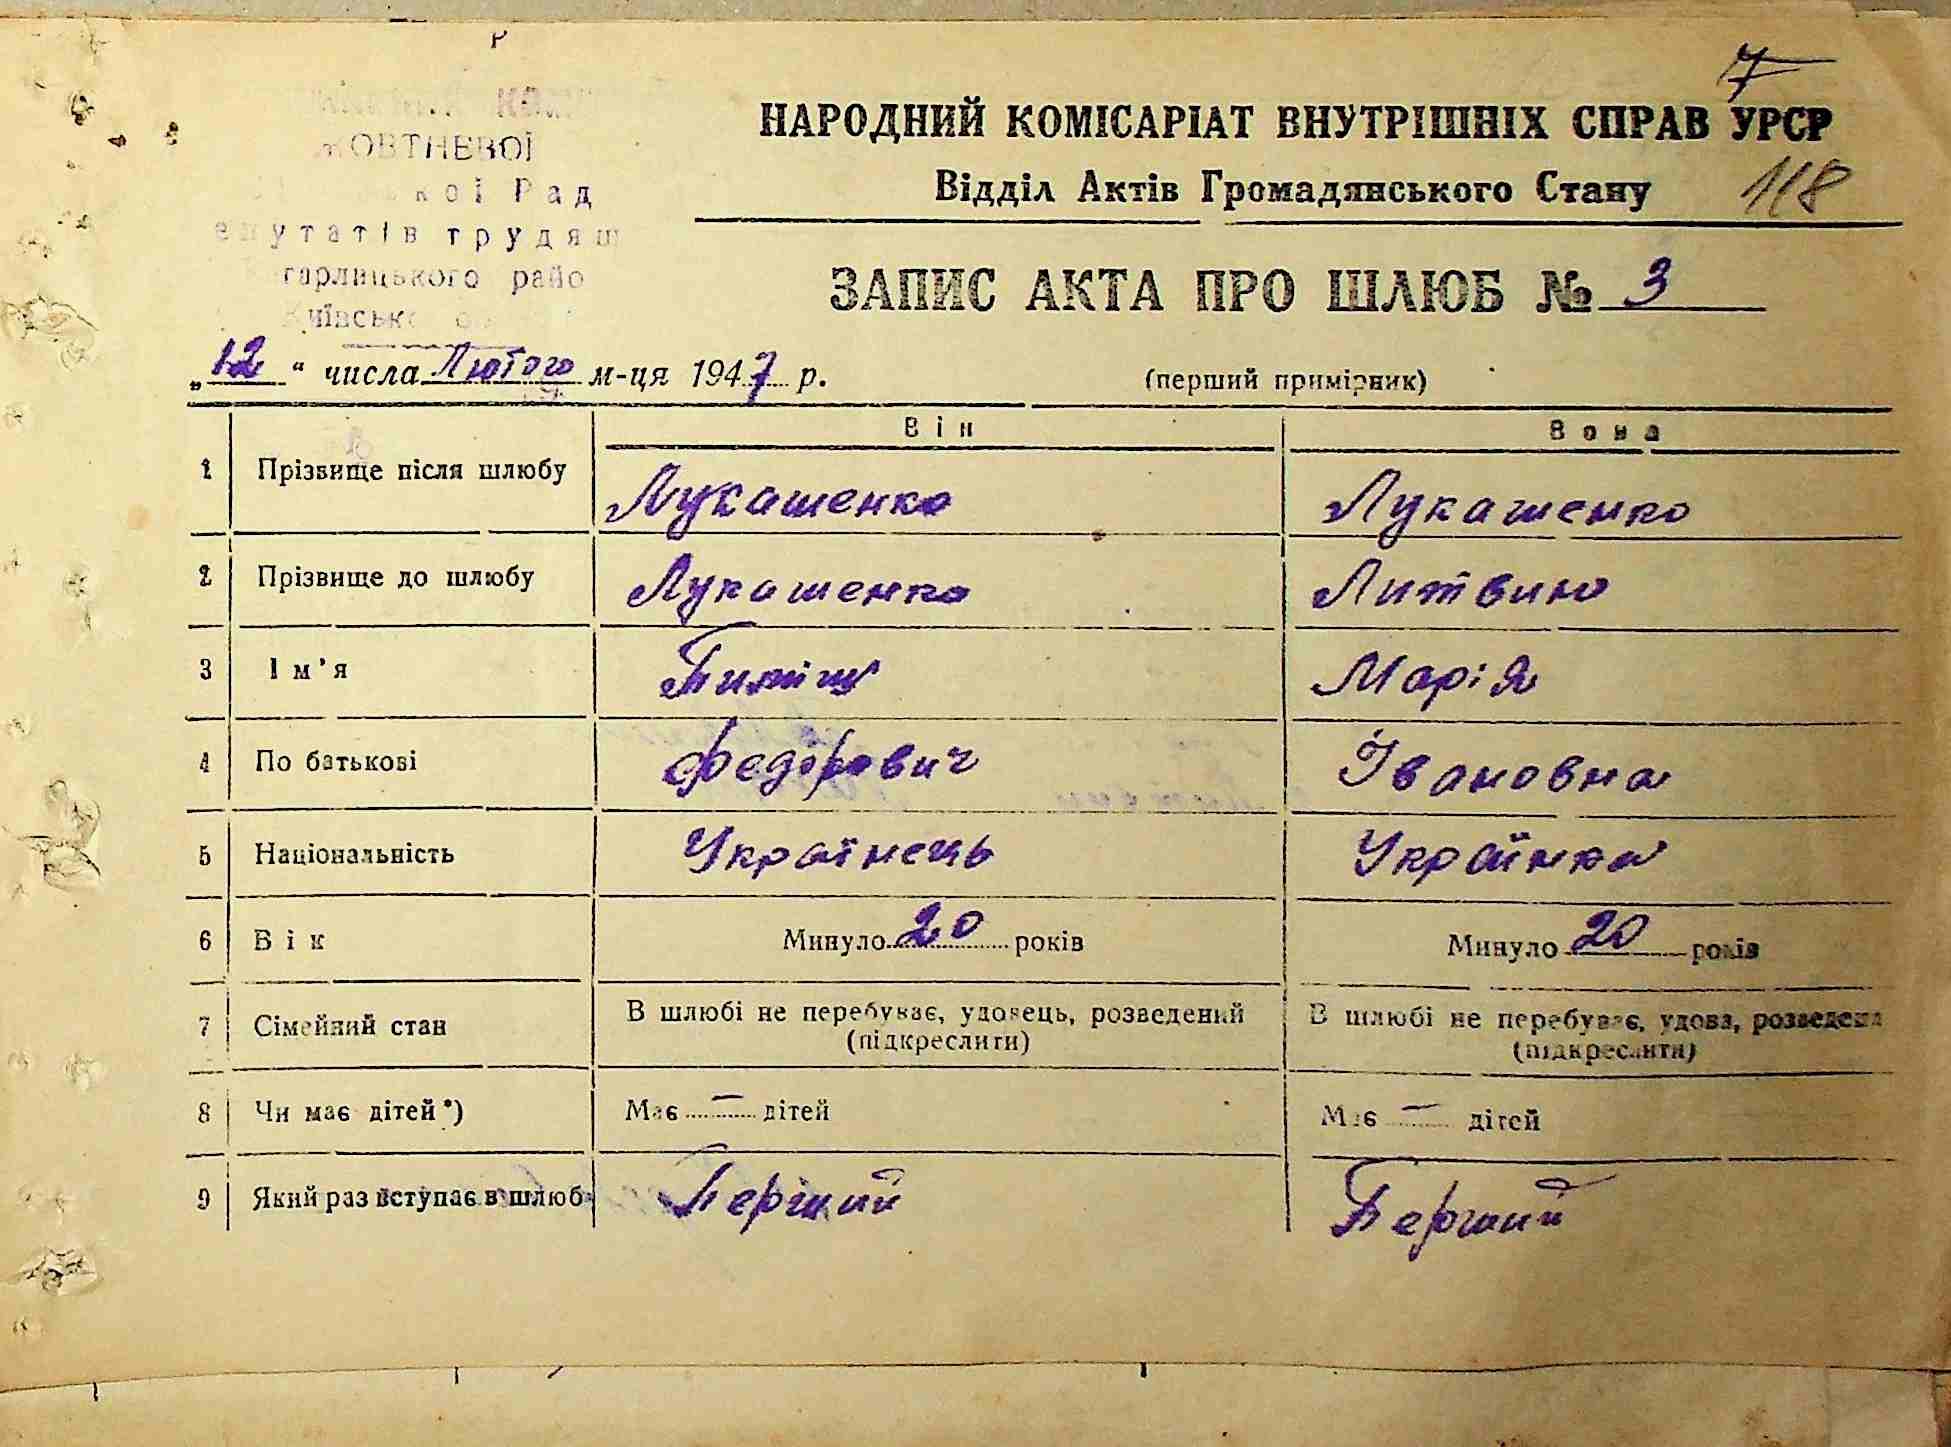 7
НАРОДНИЙ КОМІСАРІАТ ВНУТРІШНІХ СПРАВ УРСР
Відділ Актів Громадянського Стану 118
ЖОВТНЕВОЇ
Рад
депутатів трудящ
Кагарлицького райо
Київсько
ЗАПИС АКТА ПРО ШЛЮБ № 3
„12“ числа Лютого м-ця 1947 р.
(перший примірник)
Він Вона
1 Прізвище після шлюбу Лукашенко Лукашенко
2 Прізвище до шлюбу Лукашенко Литвин
3 Ім'я Марія
4 По батькові Федорович Івановна
5 Національність Українець Українка
6 Вік Минуло 20 років Минуло 20 років
7 Сімейний стан В шлюбі не перебуває, удовець, розведений В шлюбі не перебуває, удова, розведена
(підкреслити) (підкреслити)
8 Чи має дітей*) Має — дітей Має — дітей
9 Який раз вступає в шлюб Перший Перший